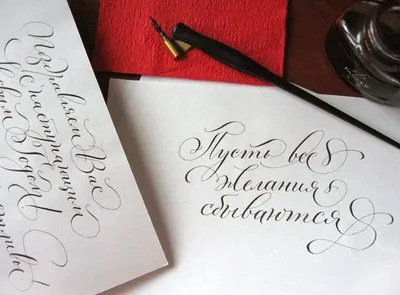 Поздравляем Вас
с наступающим
Новым Годом!
Пусть все
желания
сбываются